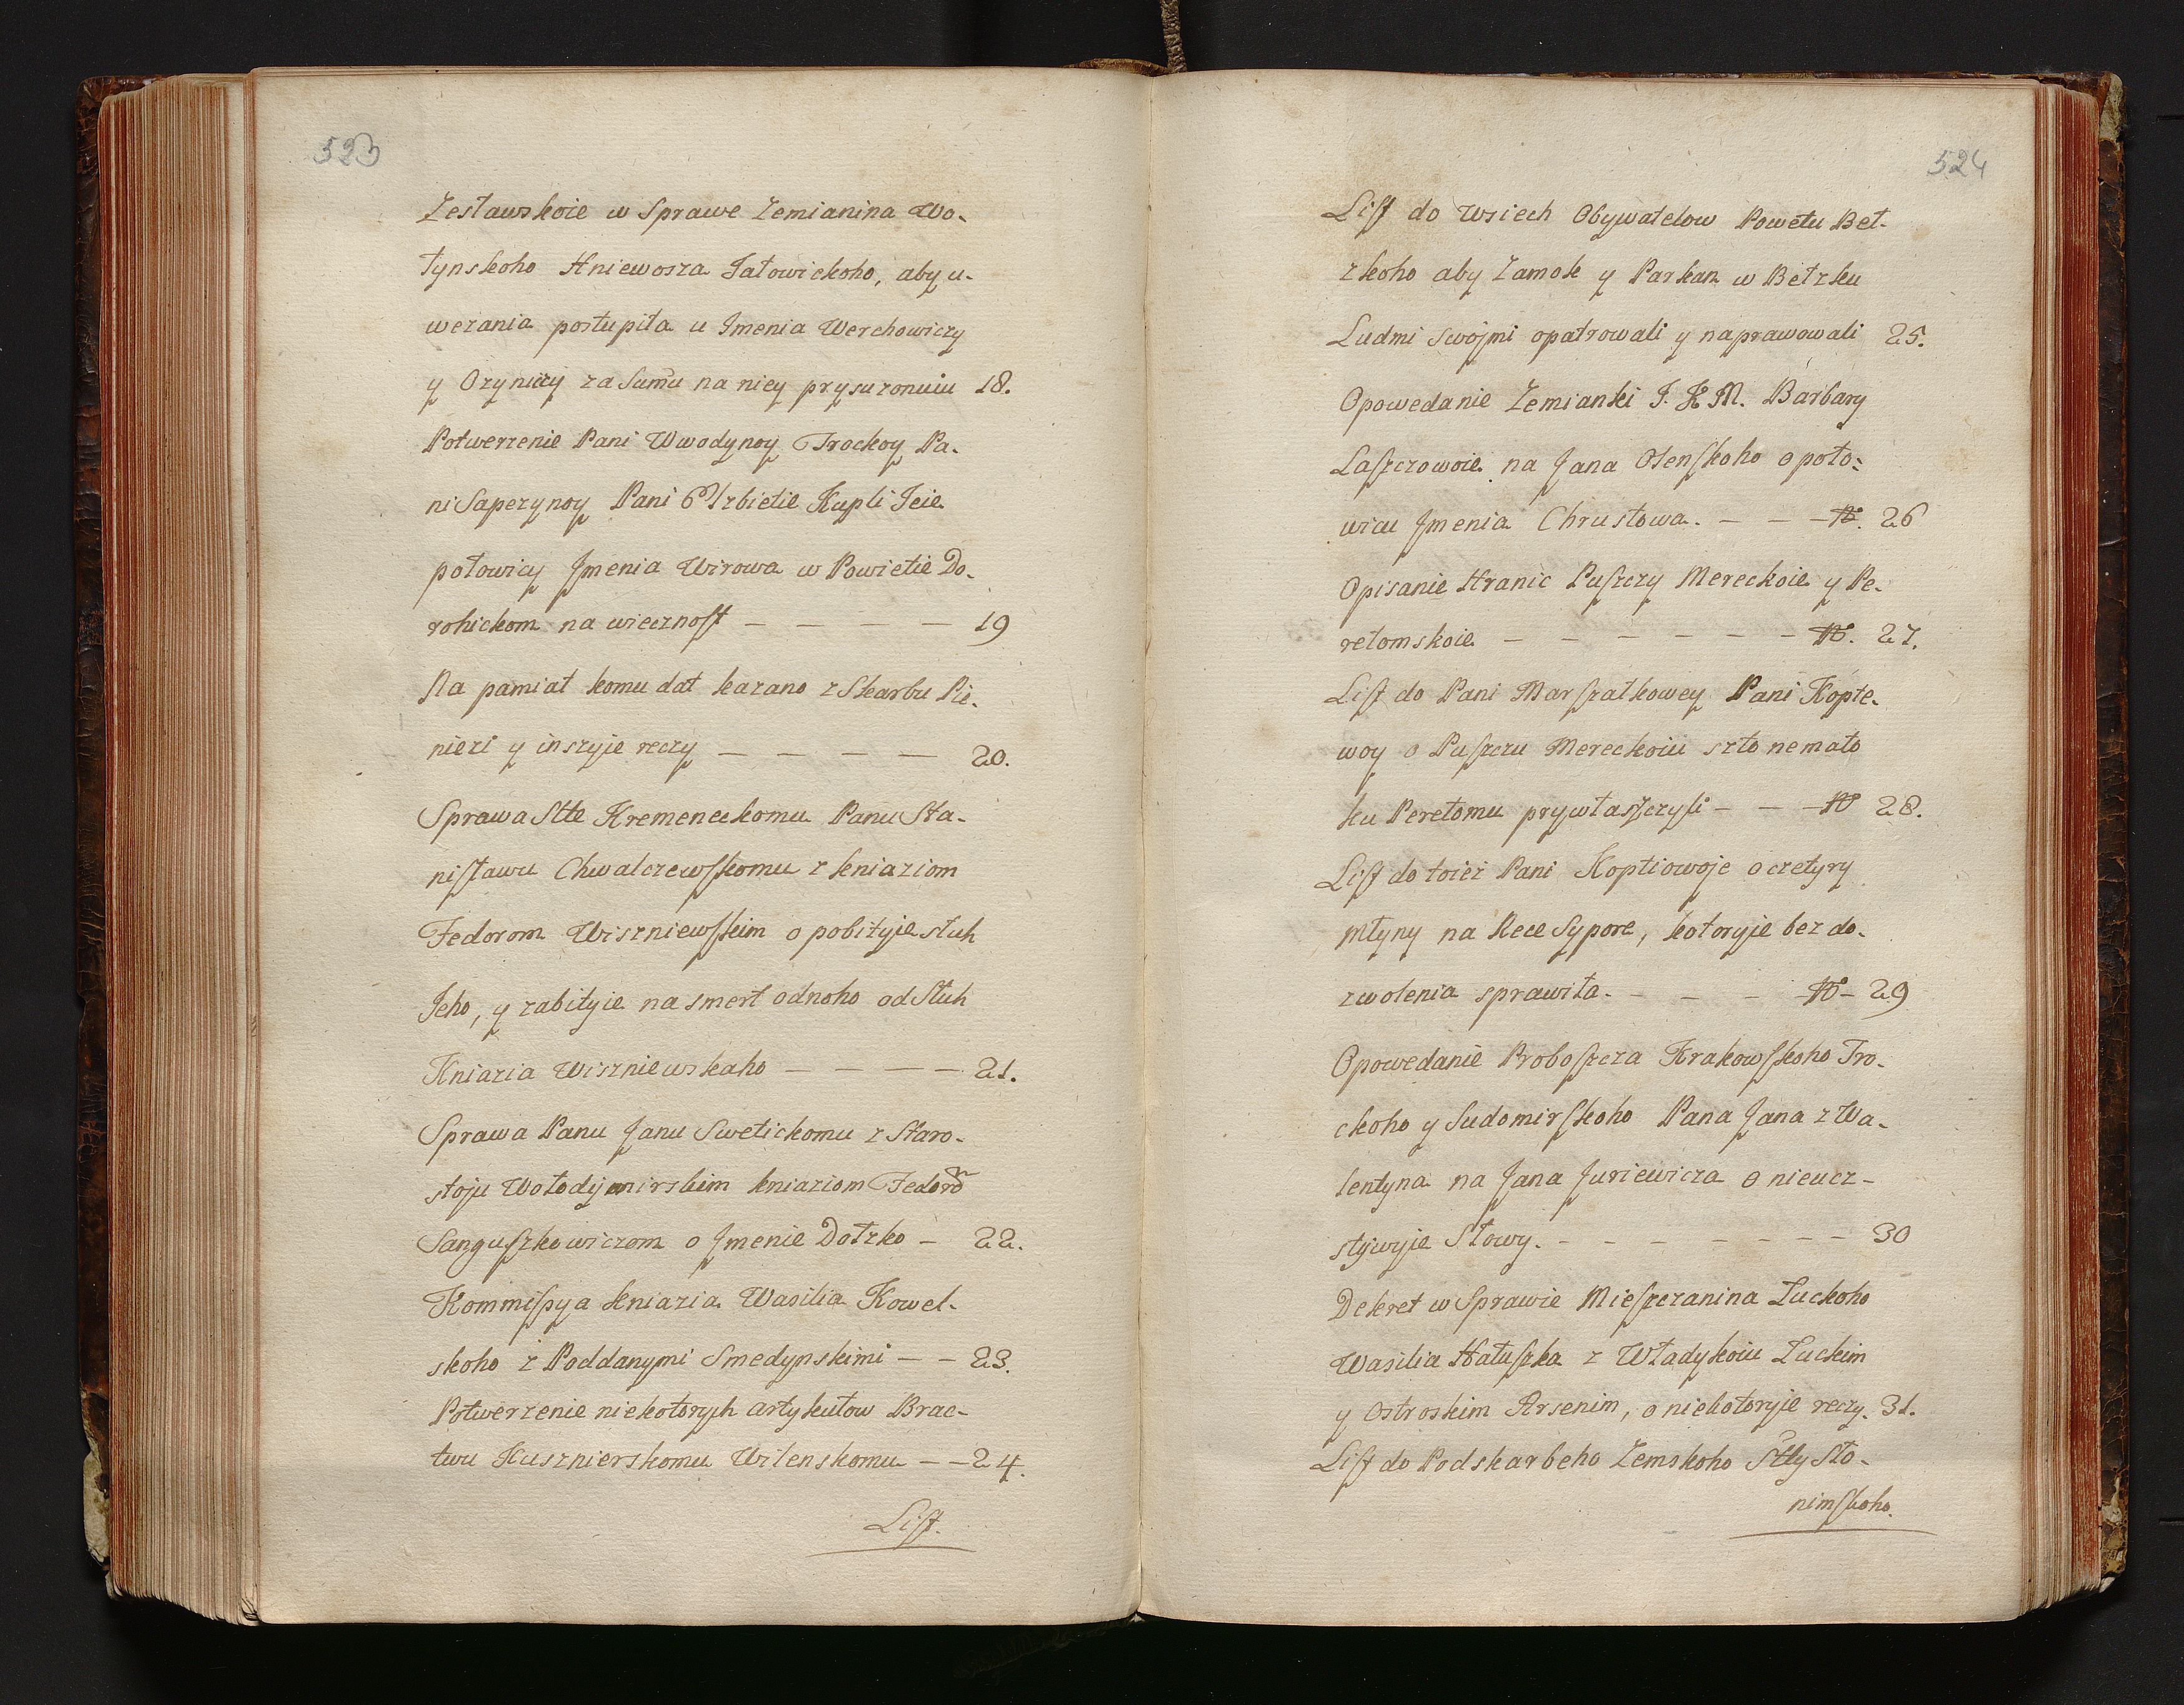 523
Zesławskoie w Sprawe Zemianina Wo-
łynskoho Hniewosza Jałowickoho, aby u-
wezania postupiła u Jmenia Werchowiczy
y Ozyniczy za Summu na niey prysuzonuiu 18.
Potwerzenie Pani Wwodynoy Trockoy Pa-
ni Sapezynoy Pani Elzbietie Kupli Jeie
połowicy Jmenia Wirowa w Powietie Do-
rohickom na wiecznost — — — — 19
Na pamiat komu dat kazano z Skarbu Pie-
niezi y inszyie reczy — — — — 20.
Sprawa Stte Kremeneckomu Panu Sta-
nisławu Chwalczewskomu z kniaziom
Fedorom Wiszniewskim o pobityie słuh
Jeho, y zabityie na smert odnoho od Słuh
Kniazia Wiszniewskaho — — — — 21.
Sprawa Panu Janu Swetickomu z Staro-
stoju Wołodymirskim kniaziom Fedorom
Sanguszkowiczom o Jmenie Dołzko — 22.
Kommissya kniazia Wasilia Kowel-
skoho z Poddanymi Smedynskimi — — 23.
Potwerzenie niekotorych artykułow Brac-
twu Kusznierskomu Wilenskomu — — 24.
List.
524
List do Wsiech Obywatelow Powetu Beł-
zkoho aby Zamok y Parkan w Bełzku
Ludmi swojmi opatrowali y naprawowali 25.
Opowedanie Zemianki J. K. M. Barbary
Laszczowoie na Jana Olenskoho o poło-
wicu Jmenia Chrustowa. — — — N. 26
Opisanie Hranic Puszczy Mereckoie y Pe-
rełomskoie — — — — — — N. 27.
List do Pani Marszałkowey Pani Kopte-
woy o Puszczu Mereckoiu szto nemało
ku Perełomu prywłaszczyli — — — N 28.
List do toież Pani Koptiowoje o czetyry
młyny na Rece Sypore, kotoryje bez do-
zwolenia sprawiła. — — — N — 29
Opowedanie Proboszcza Krakowskoho Tro-
ckoho y Sudomirskoho Pana Jana z Wa-
lentyna na Jana Juriewicza o nieucz-
stywyie Słowy. — — — — — — 30
Dekret w Sprawie Mieszczanina Łuckoho
Wasilia Hałuszka z Władykoiu Łuckim
y Ostroskim Arsenim, o niekotoryje reczy. 31.
List do Podskarbeho Zemskoho Stty Sło-
nimskoho.